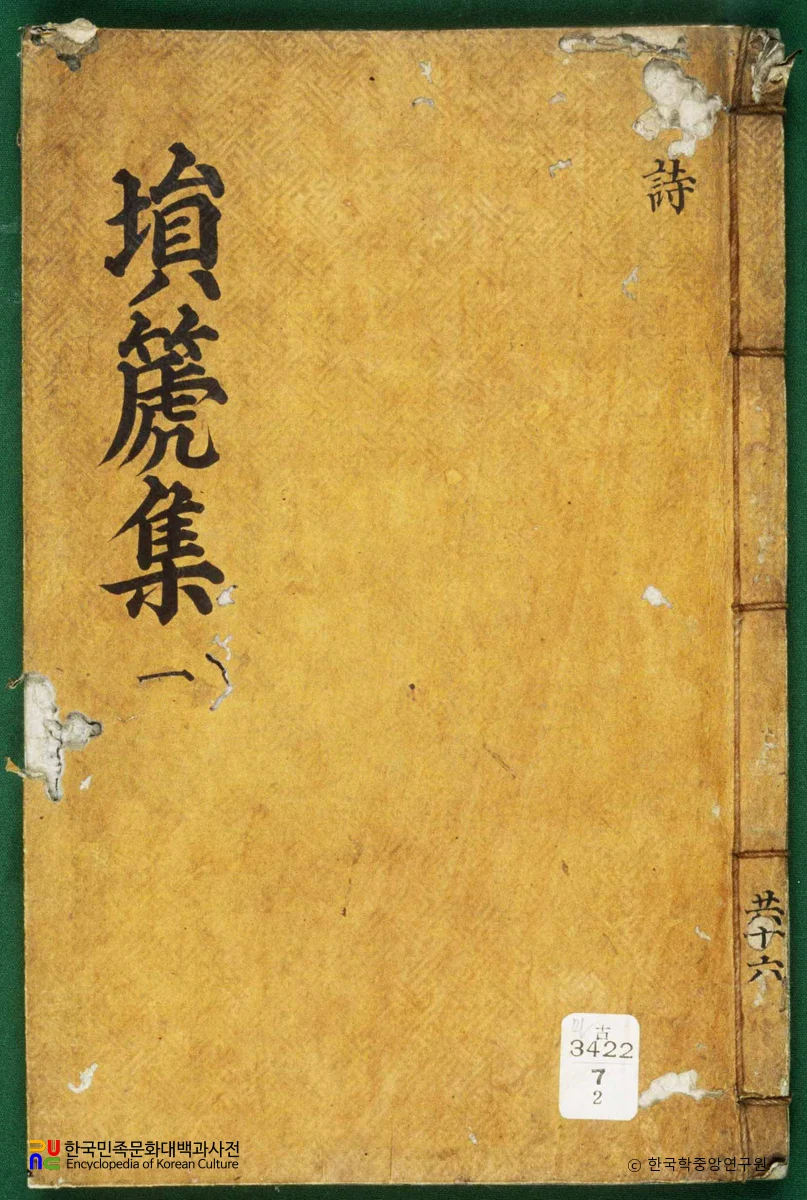 詩
塤篪集 一
共十六
古
3422
7
2
한국민족문화대백과사전
Encyclopedia of Korean Culture
© 한국학중앙연구원